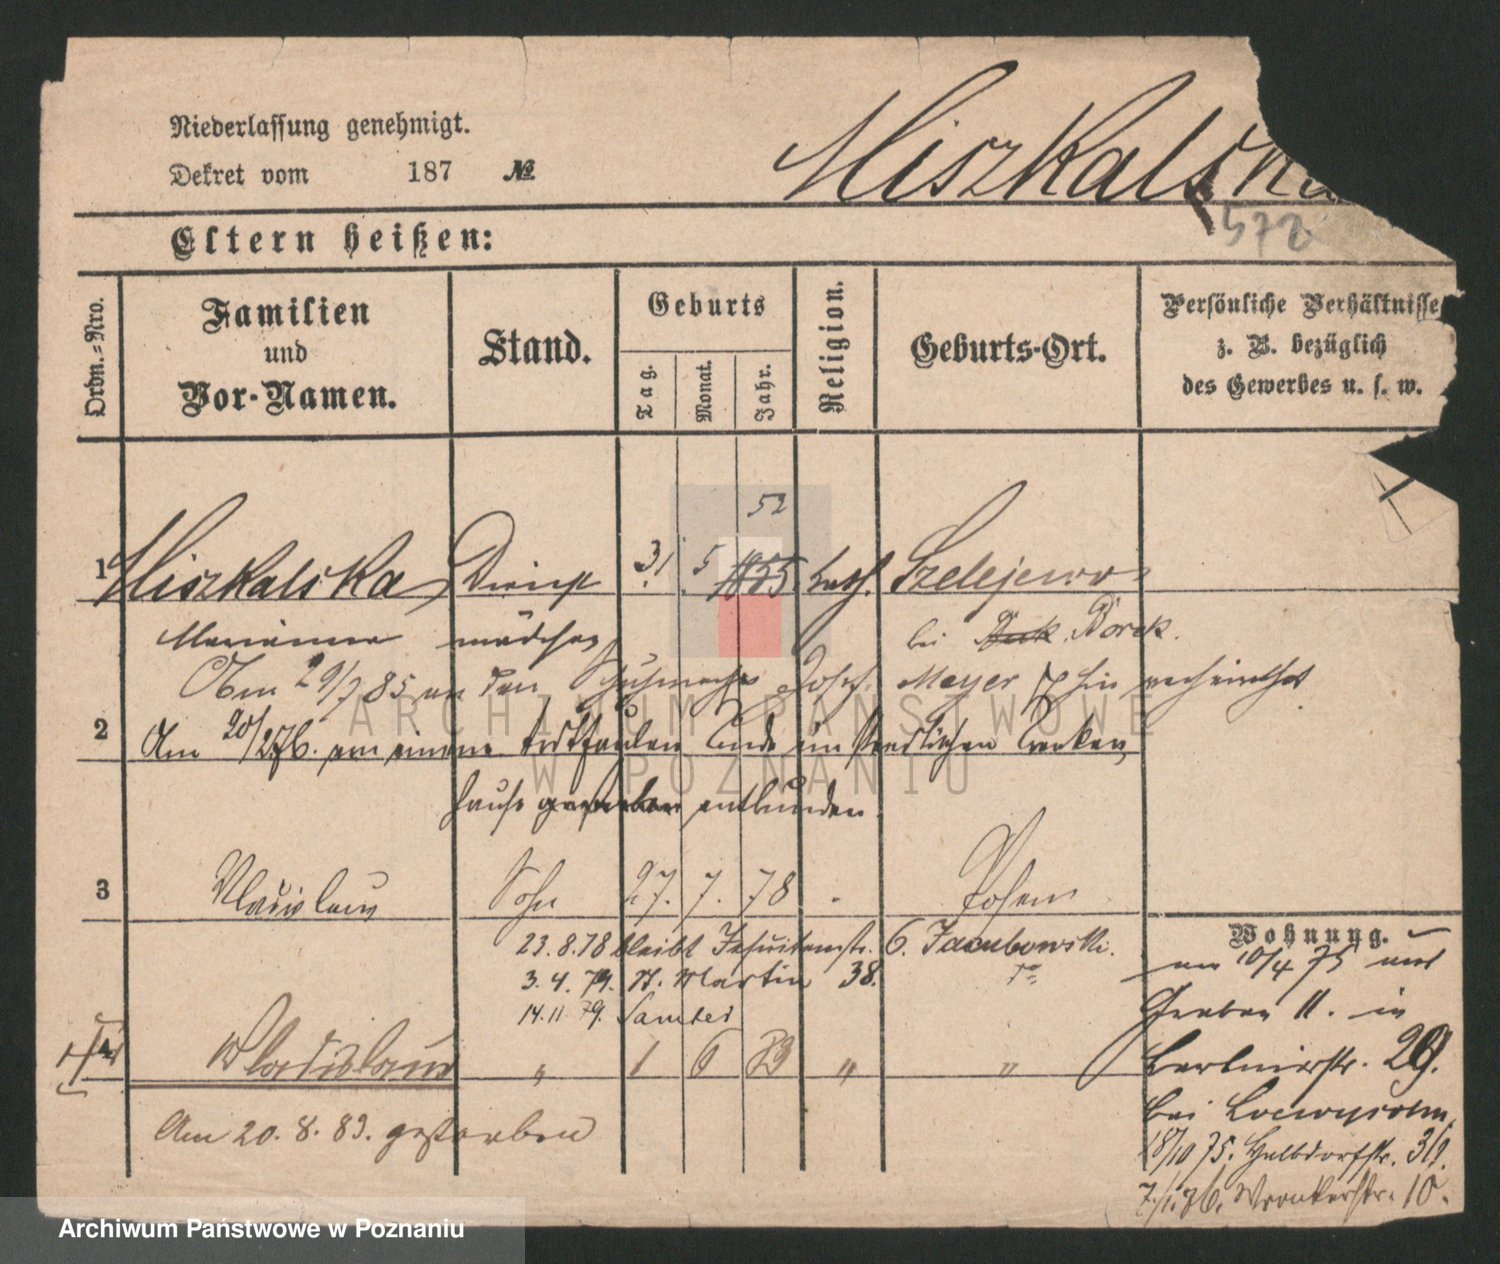 Niederlassung genehmigt.
Dekret vom 187 №
Miszkalska
572
Eltern heißen:
Ordn.=Nro.
Familien
und
Vor-Namen.
Stand.
Geburts
Tag.
Monat.
Jahr.
Religion.
Geburts-Ort.
Persönliche Verhältnisse
z. B. bezüglich
des Gewerbes u. s. w.
52
1 Miszkalska Dienst 31. 5. 1855 kath. Szelejewo
Marianna mädchen bei Borek.
Am 29/7 85 an den Schuhmacher Joseph Meyer hier verheirathet
2 Am 20/2 76. von einem todtfaulen Kinde im Städtischen Kranken
hause gestorben entbunden.
3 Wladislaus Sohn 27. 7. 78 Posen
23.8.78 bleibt Jesuitenstr. 6. Jacubowski.
3.4.79. St. Martin 38.
14.11 79. Samter
4 Wladislaus " 1 6 83 " "
Am 20.8.83. gestorben
Wohnung.
am 10/4 75 aus
Graben 11. in
29.
bei
18/10 75. Halbdorfstr. 31.
7./1. 76. Wronkerstr. 10.
ARCHIWUM PAŃSTWOWE
W POZNANIU
Archiwum Państwowe w Poznaniu